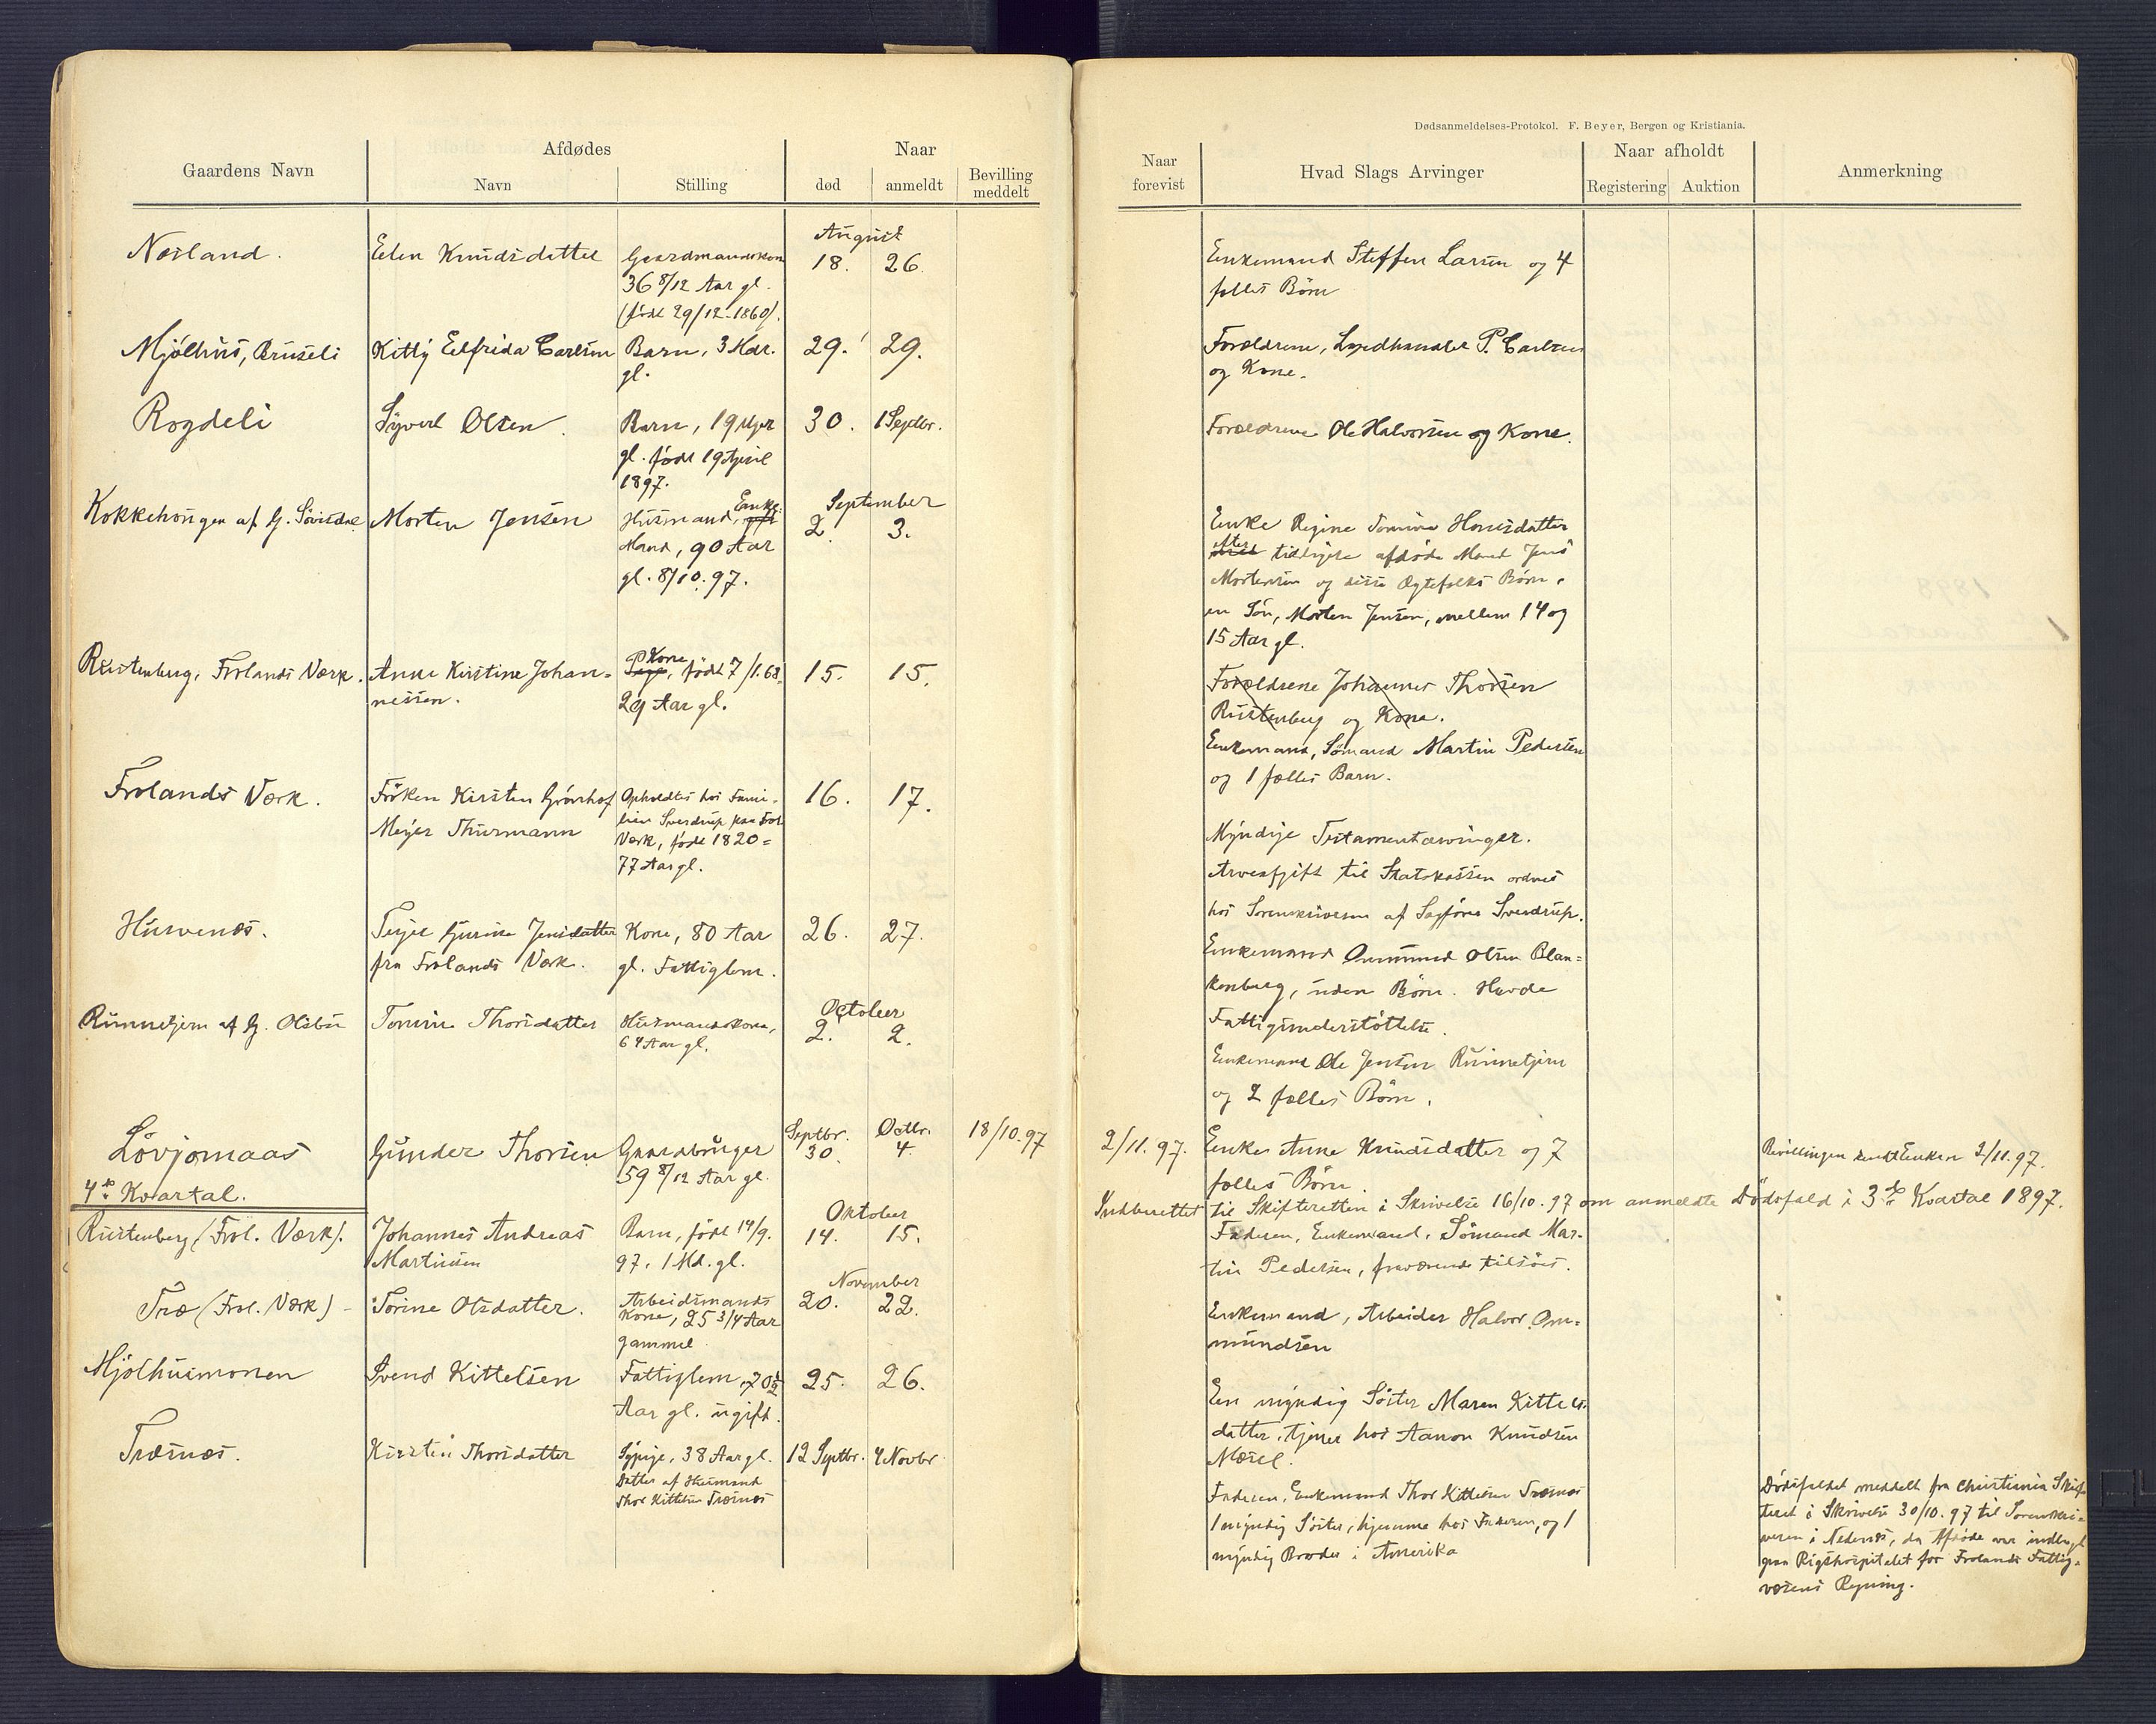 Dødsanmeldelses-Protokol. F. Beyer, Bergen og Kristiania.
Gaardens Navn
Afdødes
Navn
Stilling
Naar
død
anmeldt
Bevilling
meddelt
Naar
forevist
Hvad Slags Arvinger
Naar afholdt
Registering
Auktion
Anmerkning
August
Næsland. Elen Knudsdatter Gaardmandskone 18. 26.
36 8/12 Aar gl.
(født 29/12-1860).
Enkemand Steffen Larsen og 4
fælles Børn
Mjølhus, Bruseli Kitty Elfrida Carlsen Barn, 3 Mdr. 29. 29.
gl.
Forældrene, Landhandler P. Carlsen
og Kone.
Rogdeli Syvert Olsen. Barn, 19 Uger 30. 1 Septbr.
gl. født 19 April
1897.
Forældrene Ole Halvorsen og Kone.
September
Kokkehougen af G. Morten Jensen Husmand, gift Enke- 2. 3.
Mand, 90 Aar
gl. 8/10.97.
Enke Regine Tomine Hansdatter
efter tidligere afdøde Mand Jens
Mortensen og disse Ægtefolks Børn,
en Søn, Morten Jensen, mellem 14 og
15 Aar gl.
Rustenberg, Frolands Værk. Anne Kirstine Johan- Pige, Kone født 7/1.68, 15. 15.
nessen. 29 Aar gl.
Forældrene Johannes Thorsen
Rustenberg og Kone.
Enkemand, Sømand Martin Pedersen
og 1 fælles Barn.
Frolands Værk. Frøken Kirsten Opholdtes hos Fami- 16. 17.
Meyer Thurmann lien Sverdrup paa Frol.
Værk, født 1820 =
77 Aar gl.
Myndige Testamentarvinger.
Arveafgift til Statskassen ordnes
hos Sorenskriveren af Sagfører Sverdrup.
Husvenæs. Terje Gurine Jensdatter Kone, 80 Aar 26. 27.
fra Frolands Værk. gl. Fattiglem.
Enkemand Ommund Olsen Blan-
kenberg, uden Børn. Havde
Fattigunderstøttelse.
October
Runnetjern af G. Olsbu Tomine Thorsdatter Husmandskone, 2. 2.
64 Aar gl.
Enkemand Ole Jensen Runnetjern
og 2 fælles Børn.
Septbr. Octbr.
Løvjomaas Gunder Thorsen Gaardbruger 30. 4. 18/10.97
59 8/12 Aar gl.
2/11.97. Enke Anne Knudsdatter og 7
fælles Børn.
Bevillingen sendt Enken 2/11.97.
4de Kvartal.
Indberettet til Skifteretten i Skrivelse 16/10.97 om anmeldte Dødsfald i 3de Kvartal 1897.
Oktober
Rustenberg (Frol. Værk). Johannes Andreas Barn, født 14/9. 14. 15.
Martinsen 97, 1 Md. gl.
Faderen, Enkemand, Sømand Mar-
tin Pedersen, fraværende tilsøes.
November
Træ (Frol. Værk) - Torine Olsdatter. Arbeidsmands 20. 22.
Kone, 25 3/4 Aar
gammel
Enkemand, Arbeider Halvor Om-
mundsen
Mjølhusmonen Svend Kittelsen Fattiglem, 70½ 25. 26.
Aar gl. ugift.
Een myndig Søster Maren Kittels-
datter, tjener hos Aanon Knudsen
Mæsel.
Træsnæs. Kirstin Thorsdatter Sypige, 38 Aar gl. 12 Septbr. 4 Novbr.
Datter af Husmand
Thor Kittelsen Træsnæs
Faderen, Enkemand Thor Kittelsen Træsnæs
1 myndig Søster, hjemme hos Faderen, og 1
myndig Broder i Amerika
Dødsfaldet meddelt fra Christiania Skif-
teret i Skrivelse 30/10.97 til Sorenskri-
veren i Nedenæs, da Afdøde var indlagt
paa Rigshospitalet for Frolands Fattig-
væsens Regning.